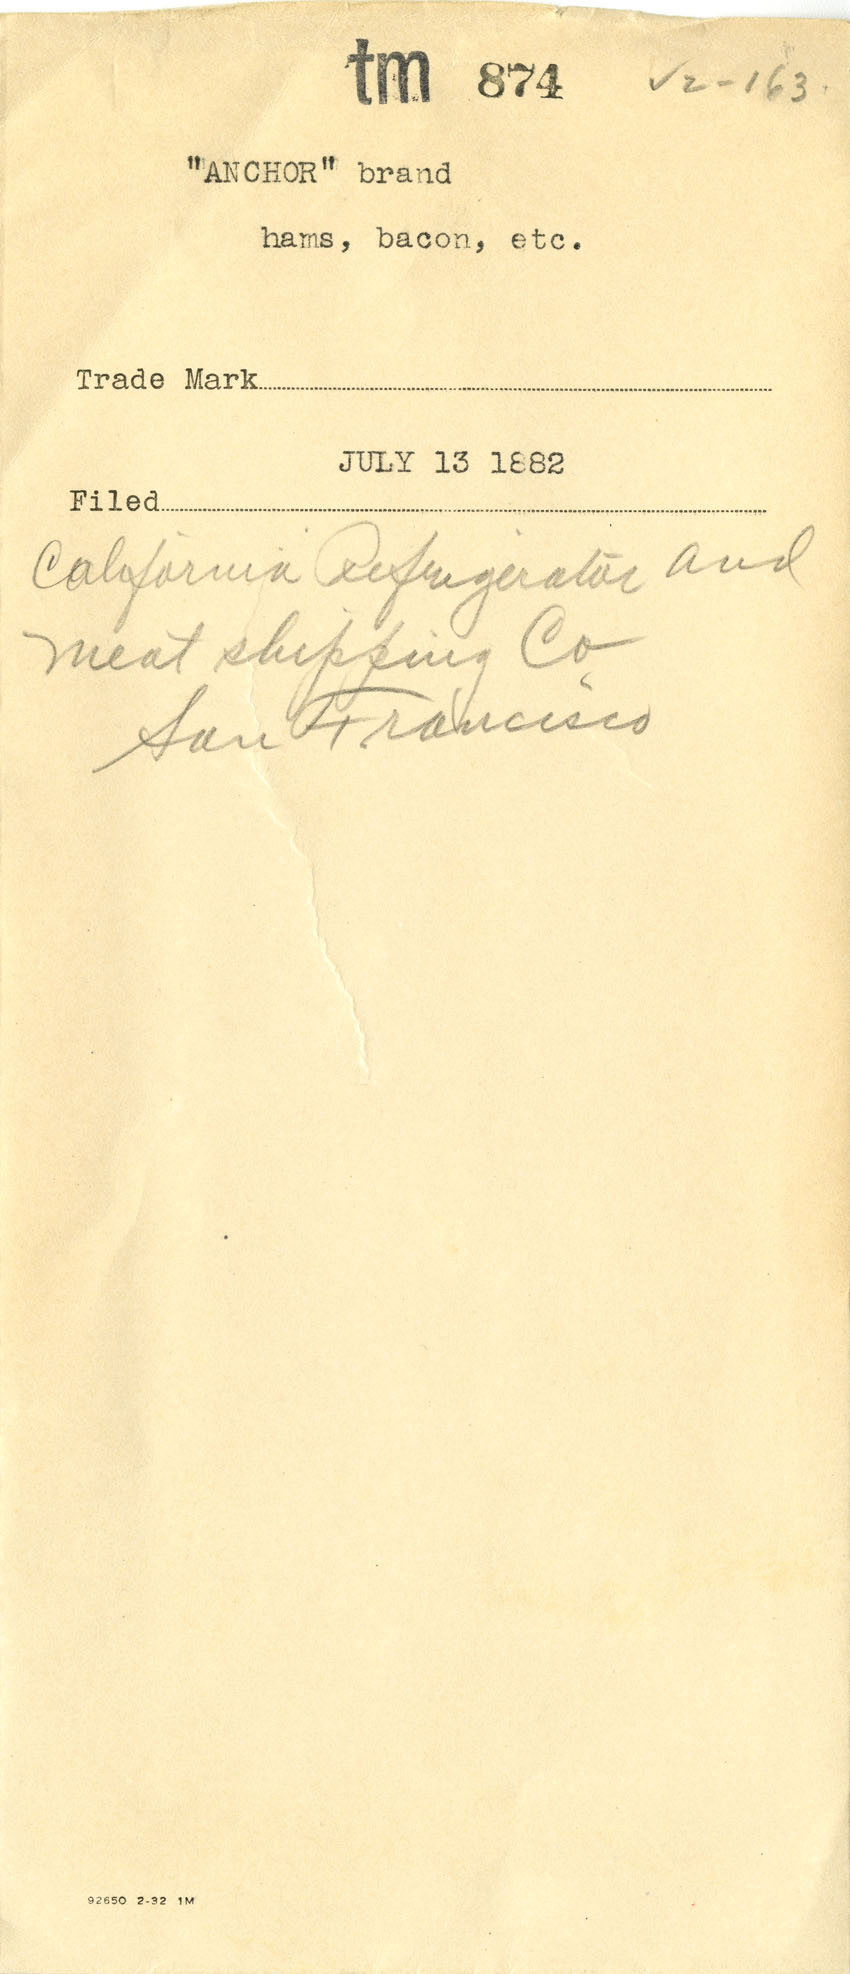 tm 874 √2-163
"ANCHOR" brand
hams, bacon, etc.
Trade Mark
JULY 13 1882
Filed
California Refrigerator and
Meat shipping Co
San Francisco
92650 2-32 1M